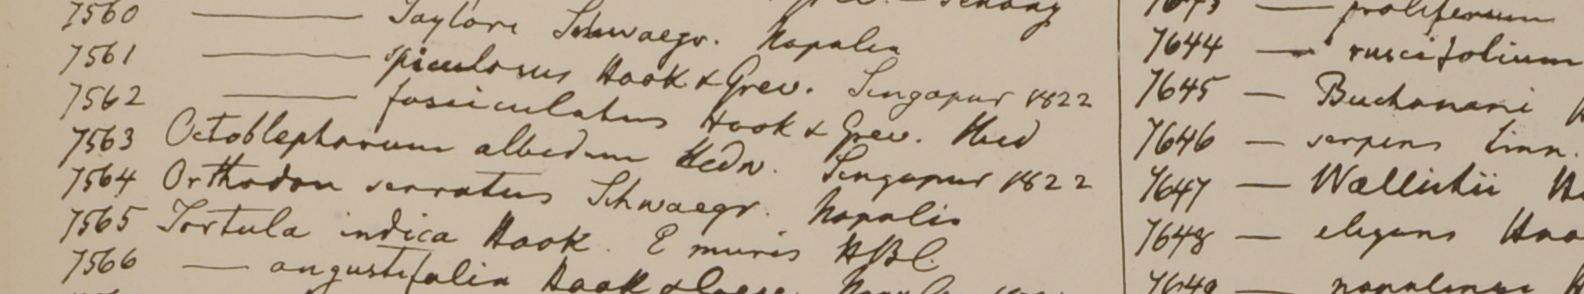 7560 —— Taylori Schwaegr. Napalia
7561 —— spiculosus Hook & Grev. Singapur 1822
7562 —— fasciculatus Hook & Grev.
7563 Octoblepharum albidum Hedw. Singapur 1822
7564 Orthodon serratus Schwaegr. Napalia
7565 Tortula indica Hook. E muris HBC.
7566 — angustifolia Hook & Grev.
— proliferum
7644 — ruscifolium
7645 — Buchanani
7646 — serpens Linn.
7647 — Wallichii
7648 — elegans
7649 — napalense